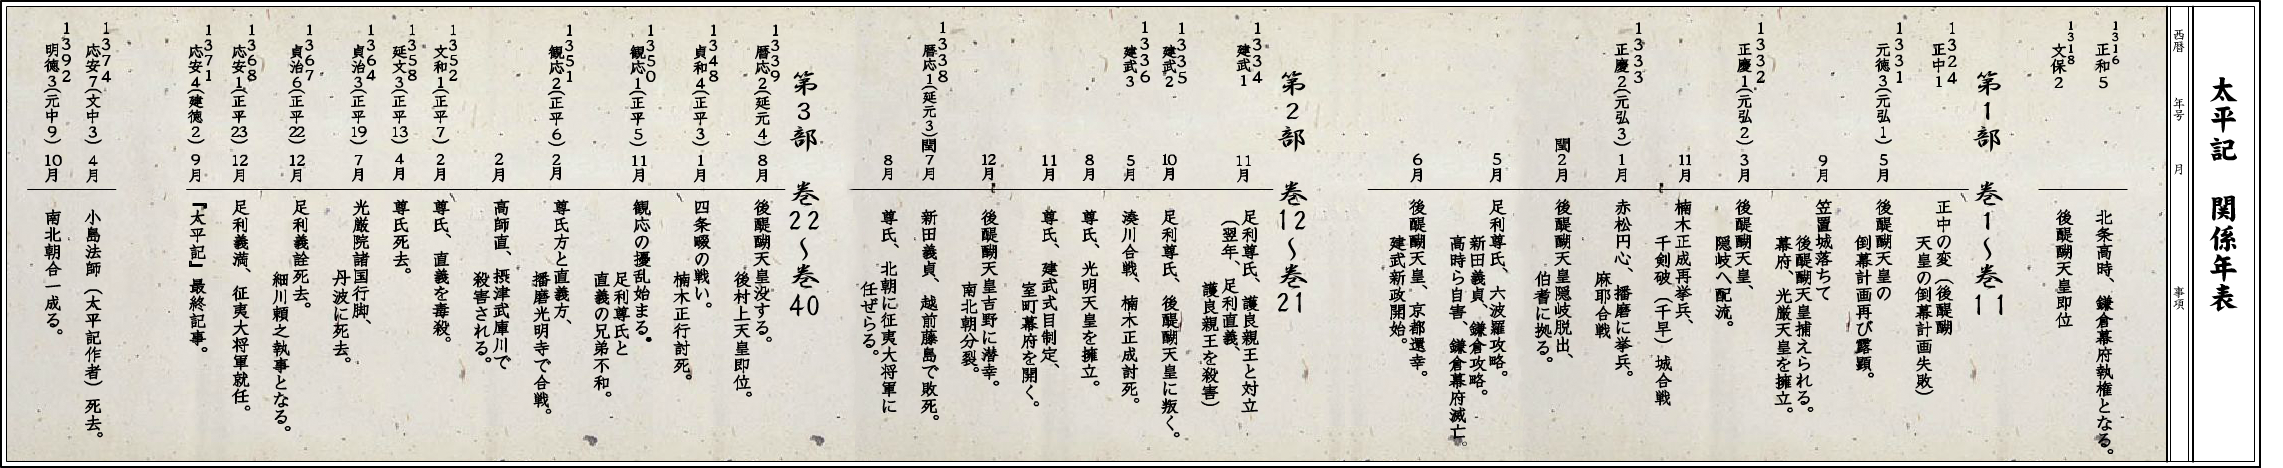 太平記　関係年表
西暦　年号　月　事項
1316
正和5
北条高時、鎌倉幕府執権となる。
1318
文保2
後醍醐天皇即位
第1部　巻1〜巻11
1324
正中1
正中の変（後醍醐
天皇の倒幕計画失敗）
1331
元徳3（元弘1）
5月
後醍醐天皇の
倒幕計画再び露顕。
9月
笠置城落ちて
後醍醐天皇捕えられる。
幕府、光厳天皇を擁立。
1332
正慶1（元弘2）
3月
後醍醐天皇、
隠岐へ配流。
11月
楠木正成再挙兵、
千剣破（千早）城合戦
1333
正慶2（元弘3）
1月
赤松円心、播磨に挙兵。
麻耶合戦
閏2月
後醍醐天皇隠岐脱出、
伯耆に拠る。
5月
足利尊氏、六波羅攻略。
新田義貞、鎌倉攻略。
高時ら自害、鎌倉幕府滅亡。
6月
後醍醐天皇、京都還幸。
建武新政開始。
第2部　巻12〜巻21
1334
建武1
11月
足利尊氏、護良親王と対立
（翌年、足利直義、
護良親王を殺害）
1335
建武2
10月
足利尊氏、後醍醐天皇に叛く。
1336
建武3
5月
湊川合戦、楠木正成討死。
8月
尊氏、光明天皇を擁立。
11月
尊氏、建武式目制定、
室町幕府を開く。
12月
後醍醐天皇吉野に潜幸。
南北朝分裂。
1338
暦応1（延元3）
閏7月
新田義貞、越前藤島で敗死。
8月
尊氏、北朝に征夷大将軍に
任ぜらる。
第3部　巻22〜巻40
1339
暦応2（延元4）
8月
後醍醐天皇没する。
後村上天皇即位。
1348
貞和4（正平3）
1月
四条畷の戦い。
楠木正行討死。
1350
観応1（正平5）
11月
観応の擾乱始まる。
足利尊氏と
直義の兄弟不和。
1351
観応2（正平6）
2月
尊氏方と直義方、
播磨光明寺で合戦。
2月
高師直、摂津武庫川で
殺害される。
1352
文和1（正平7）
2月
尊氏、直義を毒殺。
1358
延文3（正平13）
4月
尊氏死去。
1364
貞治3（正平19）
7月
光厳院諸国行脚、
丹波に死去。
1367
貞治6（正平22）
12月
足利義詮死去。
細川頼之執事となる。
1368
応安1（正平23）
12月
足利義満、征夷大将軍就任。
1371
応安4（建徳2）
9月
『太平記』最終記事。
1374
応安7（文中3）
4月
小島法師（太平記作者）死去。
1392
明徳3（元中9）
10月
南北朝合一成る。